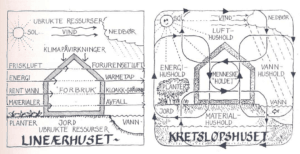 UBRUKTE RESSURSER
SOL
VIND
NEDBØR
KLIMAPÅVIRKNINGER
FRISKLUFT
FORURENSET LUFT
ENERGI
VARMETAP
RENT VANN
FORBRUK
KLOAKK
MATERIALER
AVFALL
PLANTER
JORD
VANN
UBRUKTE RESSURSER
LINEÆRHUSET
SOL
VIND
NEDBØR
LUFT-
HUSHOLD
ENERGI-
HUSHOLD
VANN-
HUSHOLD
MENNESKE
HUSET
PLANTER
JORD
MATERIAL-
HUSHOLD
KRETSLØPSHUSET